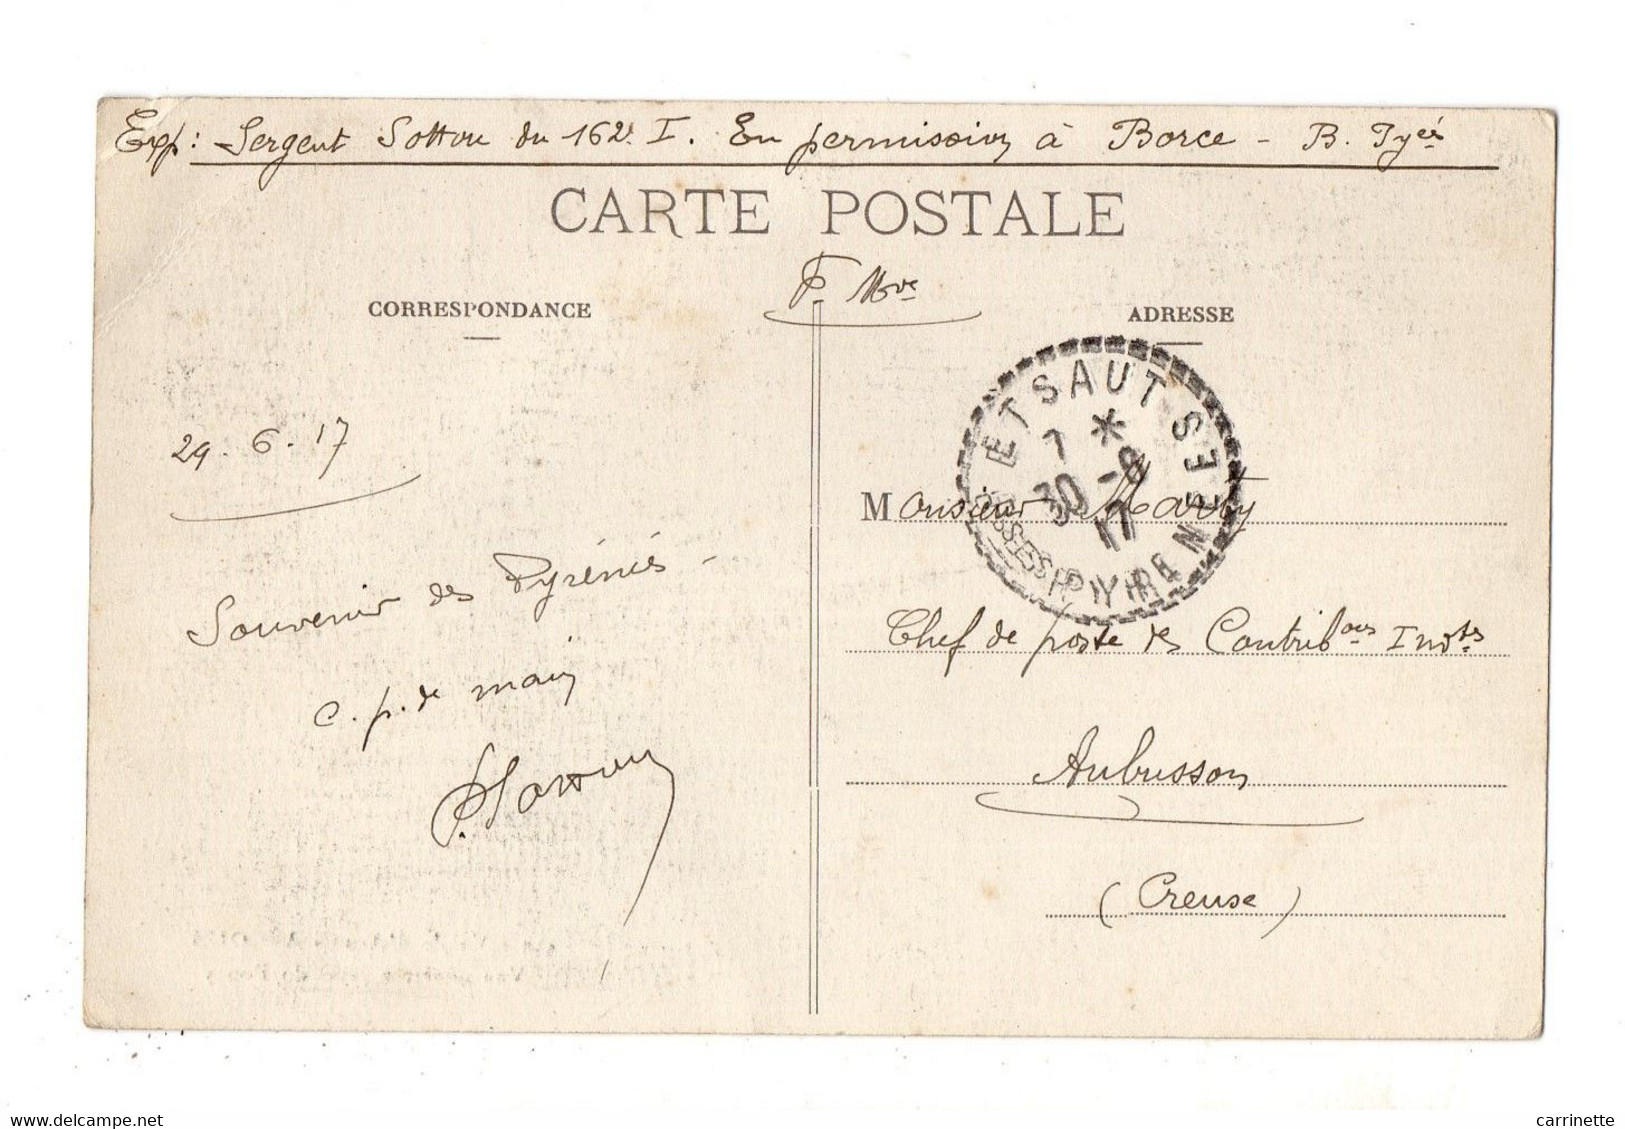 Exp: Sergent Sottou du 162e I. En permission à Borce - B. Pyées
CARTE POSTALE
F. Mre
CORRESPONDANCE
ADRESSE
29. 6. 17
Souvenir des Pyrénées -
c. p. de main
P. Sottou
ETSAUT
7 *
30 -6
17
BSSES PYRENEES
Monsieur Marty
Chef de poste des Contribons Indtes
Aubusson
(Creuse)
www.delcampe.net
carrinette